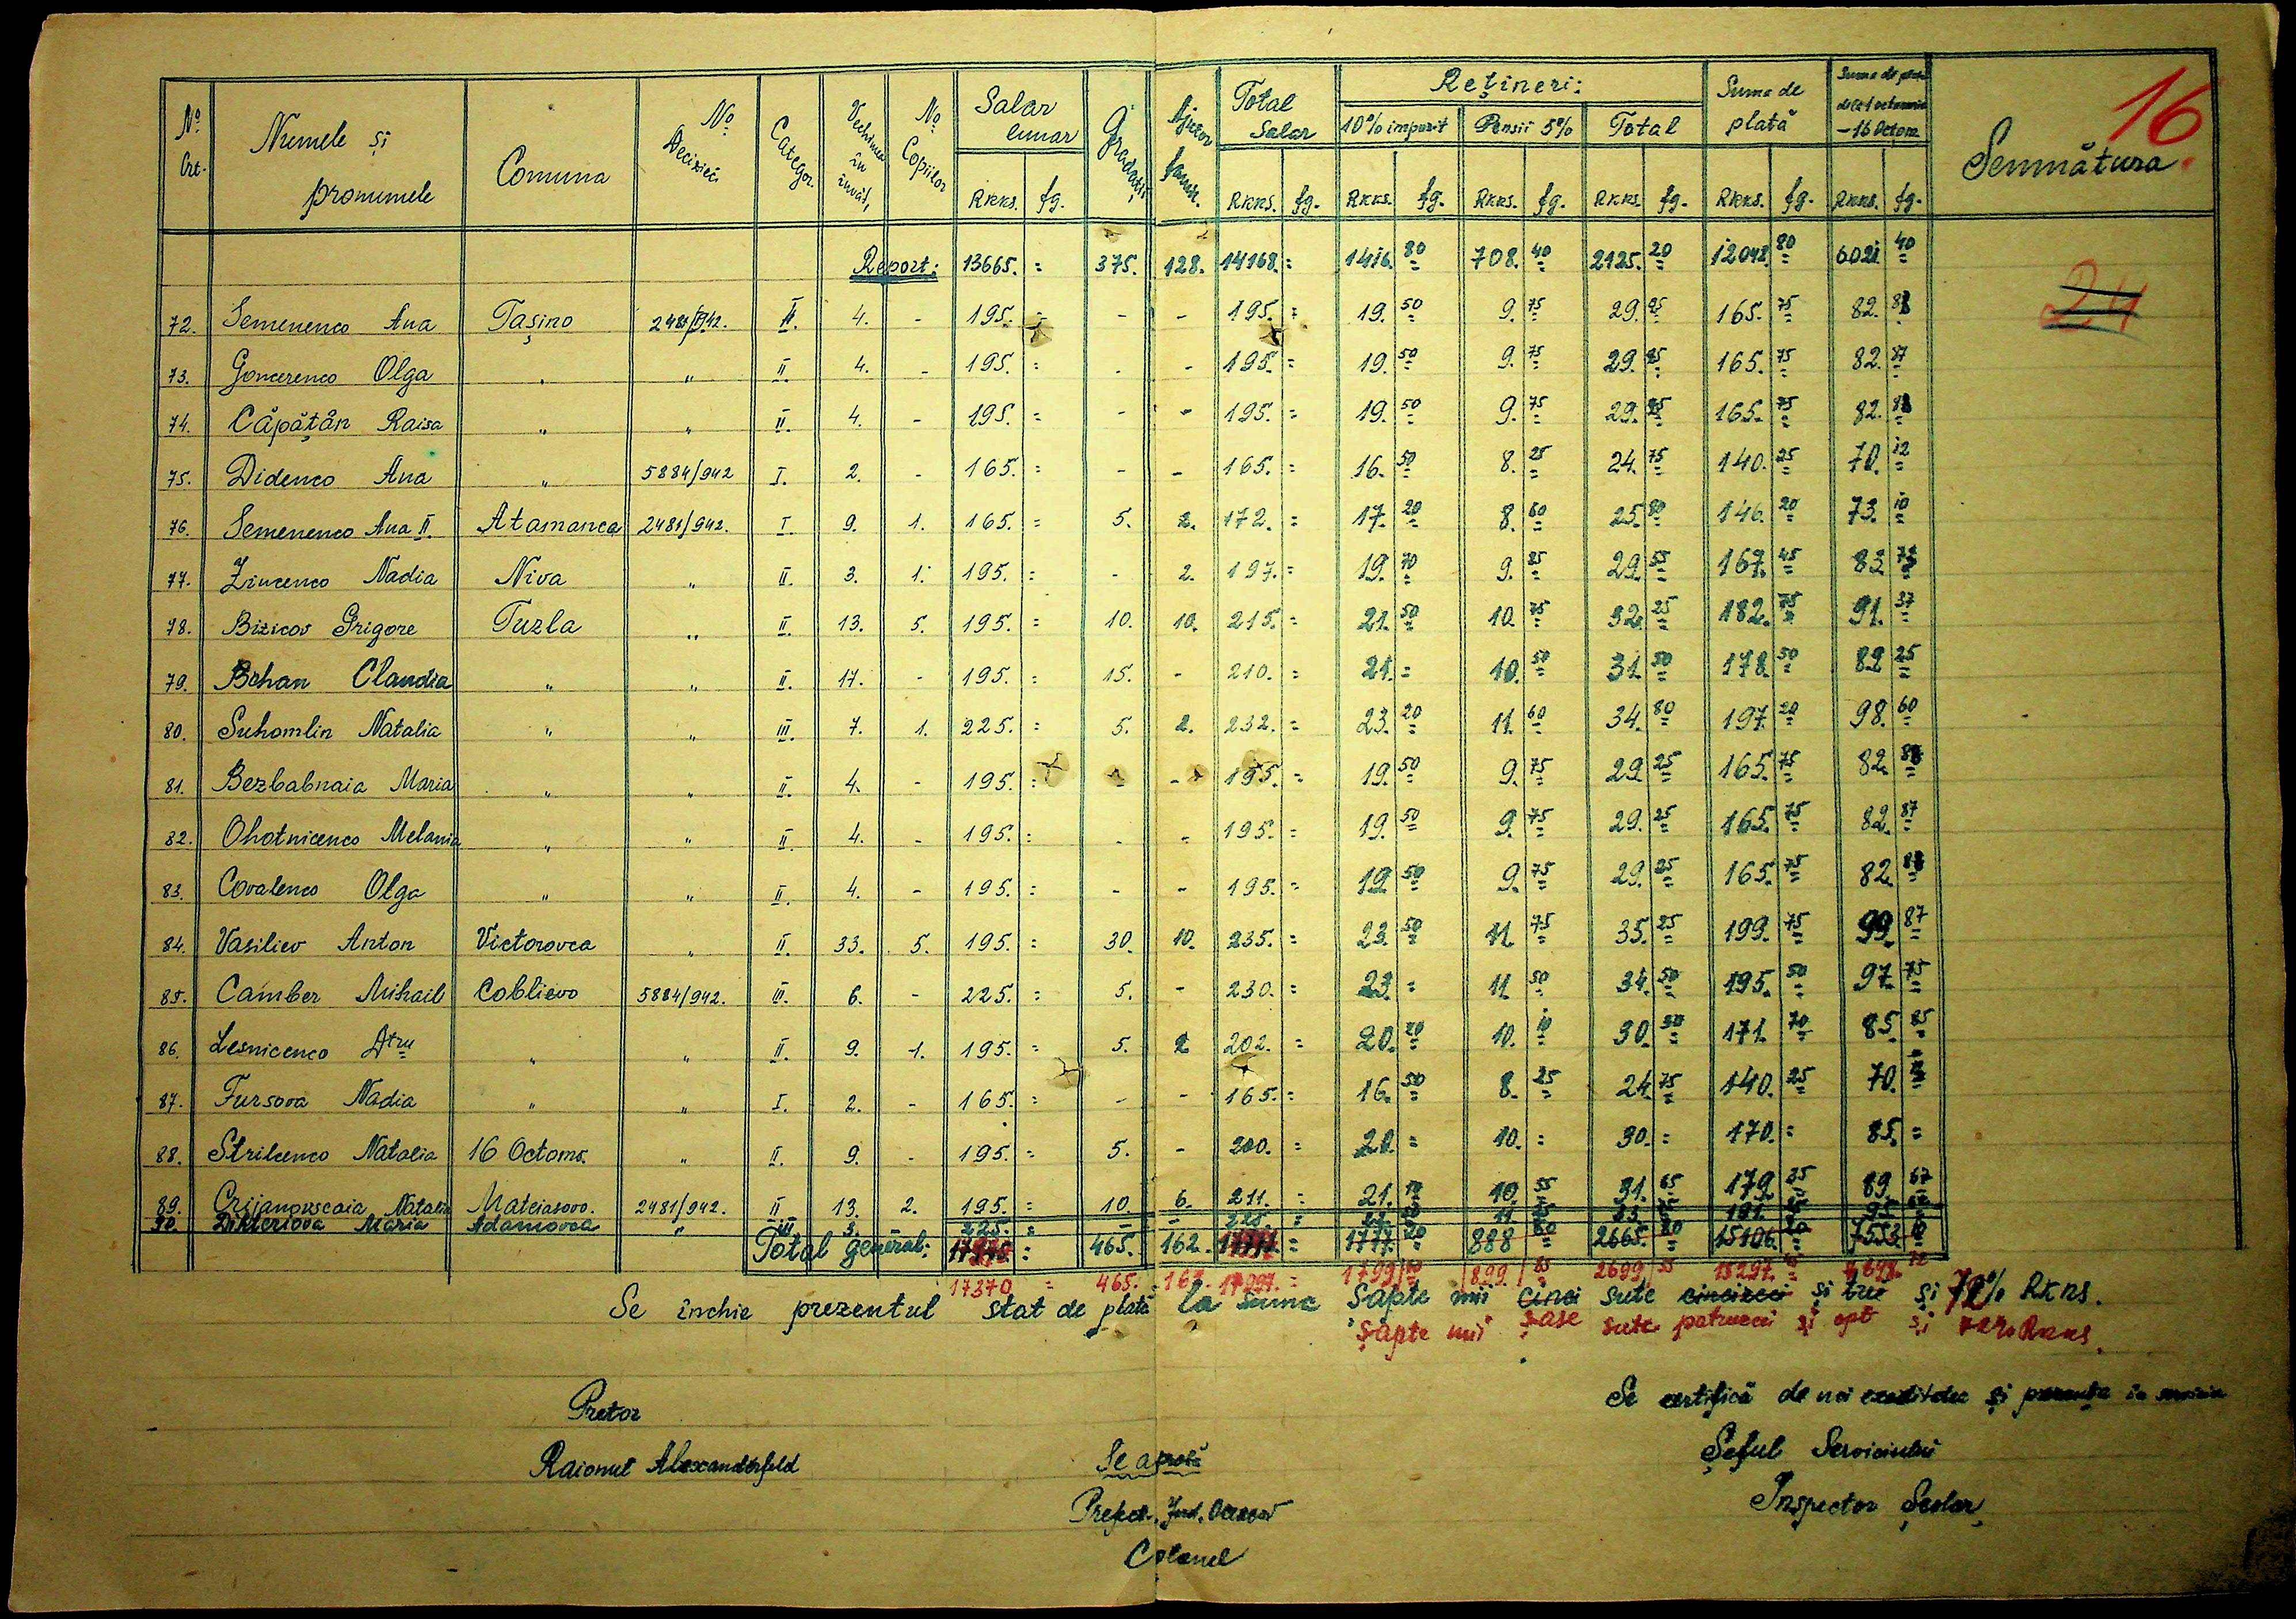 16
No Crt. Numele și pronumele Comuna No Deciziei Categor. Vechimea în învăț. No Copiilor Salar lunar Gradații Ajutor famil. Total Salar Rețineri: Suma de plată Suma de plată dela 1 octomvrie - 16 Octom. Semnătura
10% impozit Pensii 5% Total
RKKS. fg. RKKS. fg. RKKS. fg. RKKS. fg. RKKS. fg. RKKS. fg. RKKS. fg.
Report: 13665. = 375. 128. 14168. = 1416. 80 708. 40 2125. 20 12042. 80 6021. 40
24
72. Semenenco Ana Tașino 2481/942. II. 4. - 195. = - - 195. = 19. 50 9. 75 29. 25 165. 75 82.
73. Goncerenco Olga " " II. 4. - 195. = - - 195. = 19. 50 9. 75 29. 25 165. 75 82. 87
74. Căpățân Raisa " " II. 4. - 195. = - - 195. = 19. 50 9. 75 29. 25 165. 75 82.
75. Didenco Ana " 5884/942 I. 2. - 165. = - - 165. = 16. 50 8. 25 24. 75 140. 25 70. 12
76. Semenenco Ana II. Atamanca 2481/942. I. 9. 1. 165. = 5. 2. 172. = 17. 20 8. 60 25. 80 146. 20 73. 10
77. Zincenco Nadia Niva " II. 3. 1. 195. = - 2. 197. = 19. 70 9. 85 29. 55 167. 45 83.
78. Bizicov Grigore Tuzla " II. 13. 5. 195. = 10. 10. 215. = 21. 50 10. 75 32. 25 182. 75 91. 37
79. Bohan Claudia " " II. 17. - 195. = 15. - 210. = 21. = 10. 50 31. 50 178. 50 89. 25
80. Suhomlin Natalia " " III. 7. 1. 225. = 5. 2. 232. = 23. 20 11. 60 34. 80 197. 20 98. 60
81. Bezbabnaia Maria " " II. 4. - 195. = - - 195. = 19. 50 9. 75 29. 25 165. 75 82.
82. Ohotnicenco Melania " " II. 4. - 195. = - - 195. = 19. 50 9. 75 29. 25 165. 75 82. 87
83. Covalenco Olga " " II. 4. - 195. = - - 195. = 19. 50 9. 75 29. 25 165. 75 82.
84. Vasiliev Anton Victorovca " II. 33. 5. 195. = 30. 10. 235. = 23. 50 11. 75 35. 25 199. 75 99. 87
85. Camber Mihail Coblievo 5884/942. III. 6. - 225. = 5. - 230. = 23. = 11. 50 34. 50 195. 50 97. 75
86. Lesnicenco Dtru " " II. 9. 1. 195. = 5. 2 202. = 20. 20 10. 10 30. 30 171. 70 85. 85
87. Fursova Nadia " " I. 2. - 165. = - - 165. = 16. 50 8. 25 24. 75 140. 25 70.
88. Strilcenco Natalia 16 Octomv. " II. 9. - 195. = 5. - 200. = 20. = 10. = 30. = 170. = 85. =
89. Crijanovscaia Natalia Mateiasovo. 2481/942. II 13. 2. 195. = 10. 6. 211. = 21. 10 10. 55 31. 65 179. 35 89. 67
90. Maria Adamovca " III 3. - 225. = - - 225. =
Total general: = 465. 162. = 1777. 20 888 60 2665. 80 15106. 20 7553. 10
17370 = 465. 162. 17997. = 1799 70 899 85 2699 55 15297. 7648. 72
Se închie prezentul stat de plată la suma șapte mii cinci sute cincizeci și trei și 72% RKKS.
șapte mii șase sute patruzeci și opt și 72% RKKS
Pretor
Raionul Alexanderfeld
Se aprobă
Prefect. Jud. Oceacov
Colonel
Se certifică de noi exactitatea și prezența în serviciu
Șeful Serviciului
Inspector Școlar